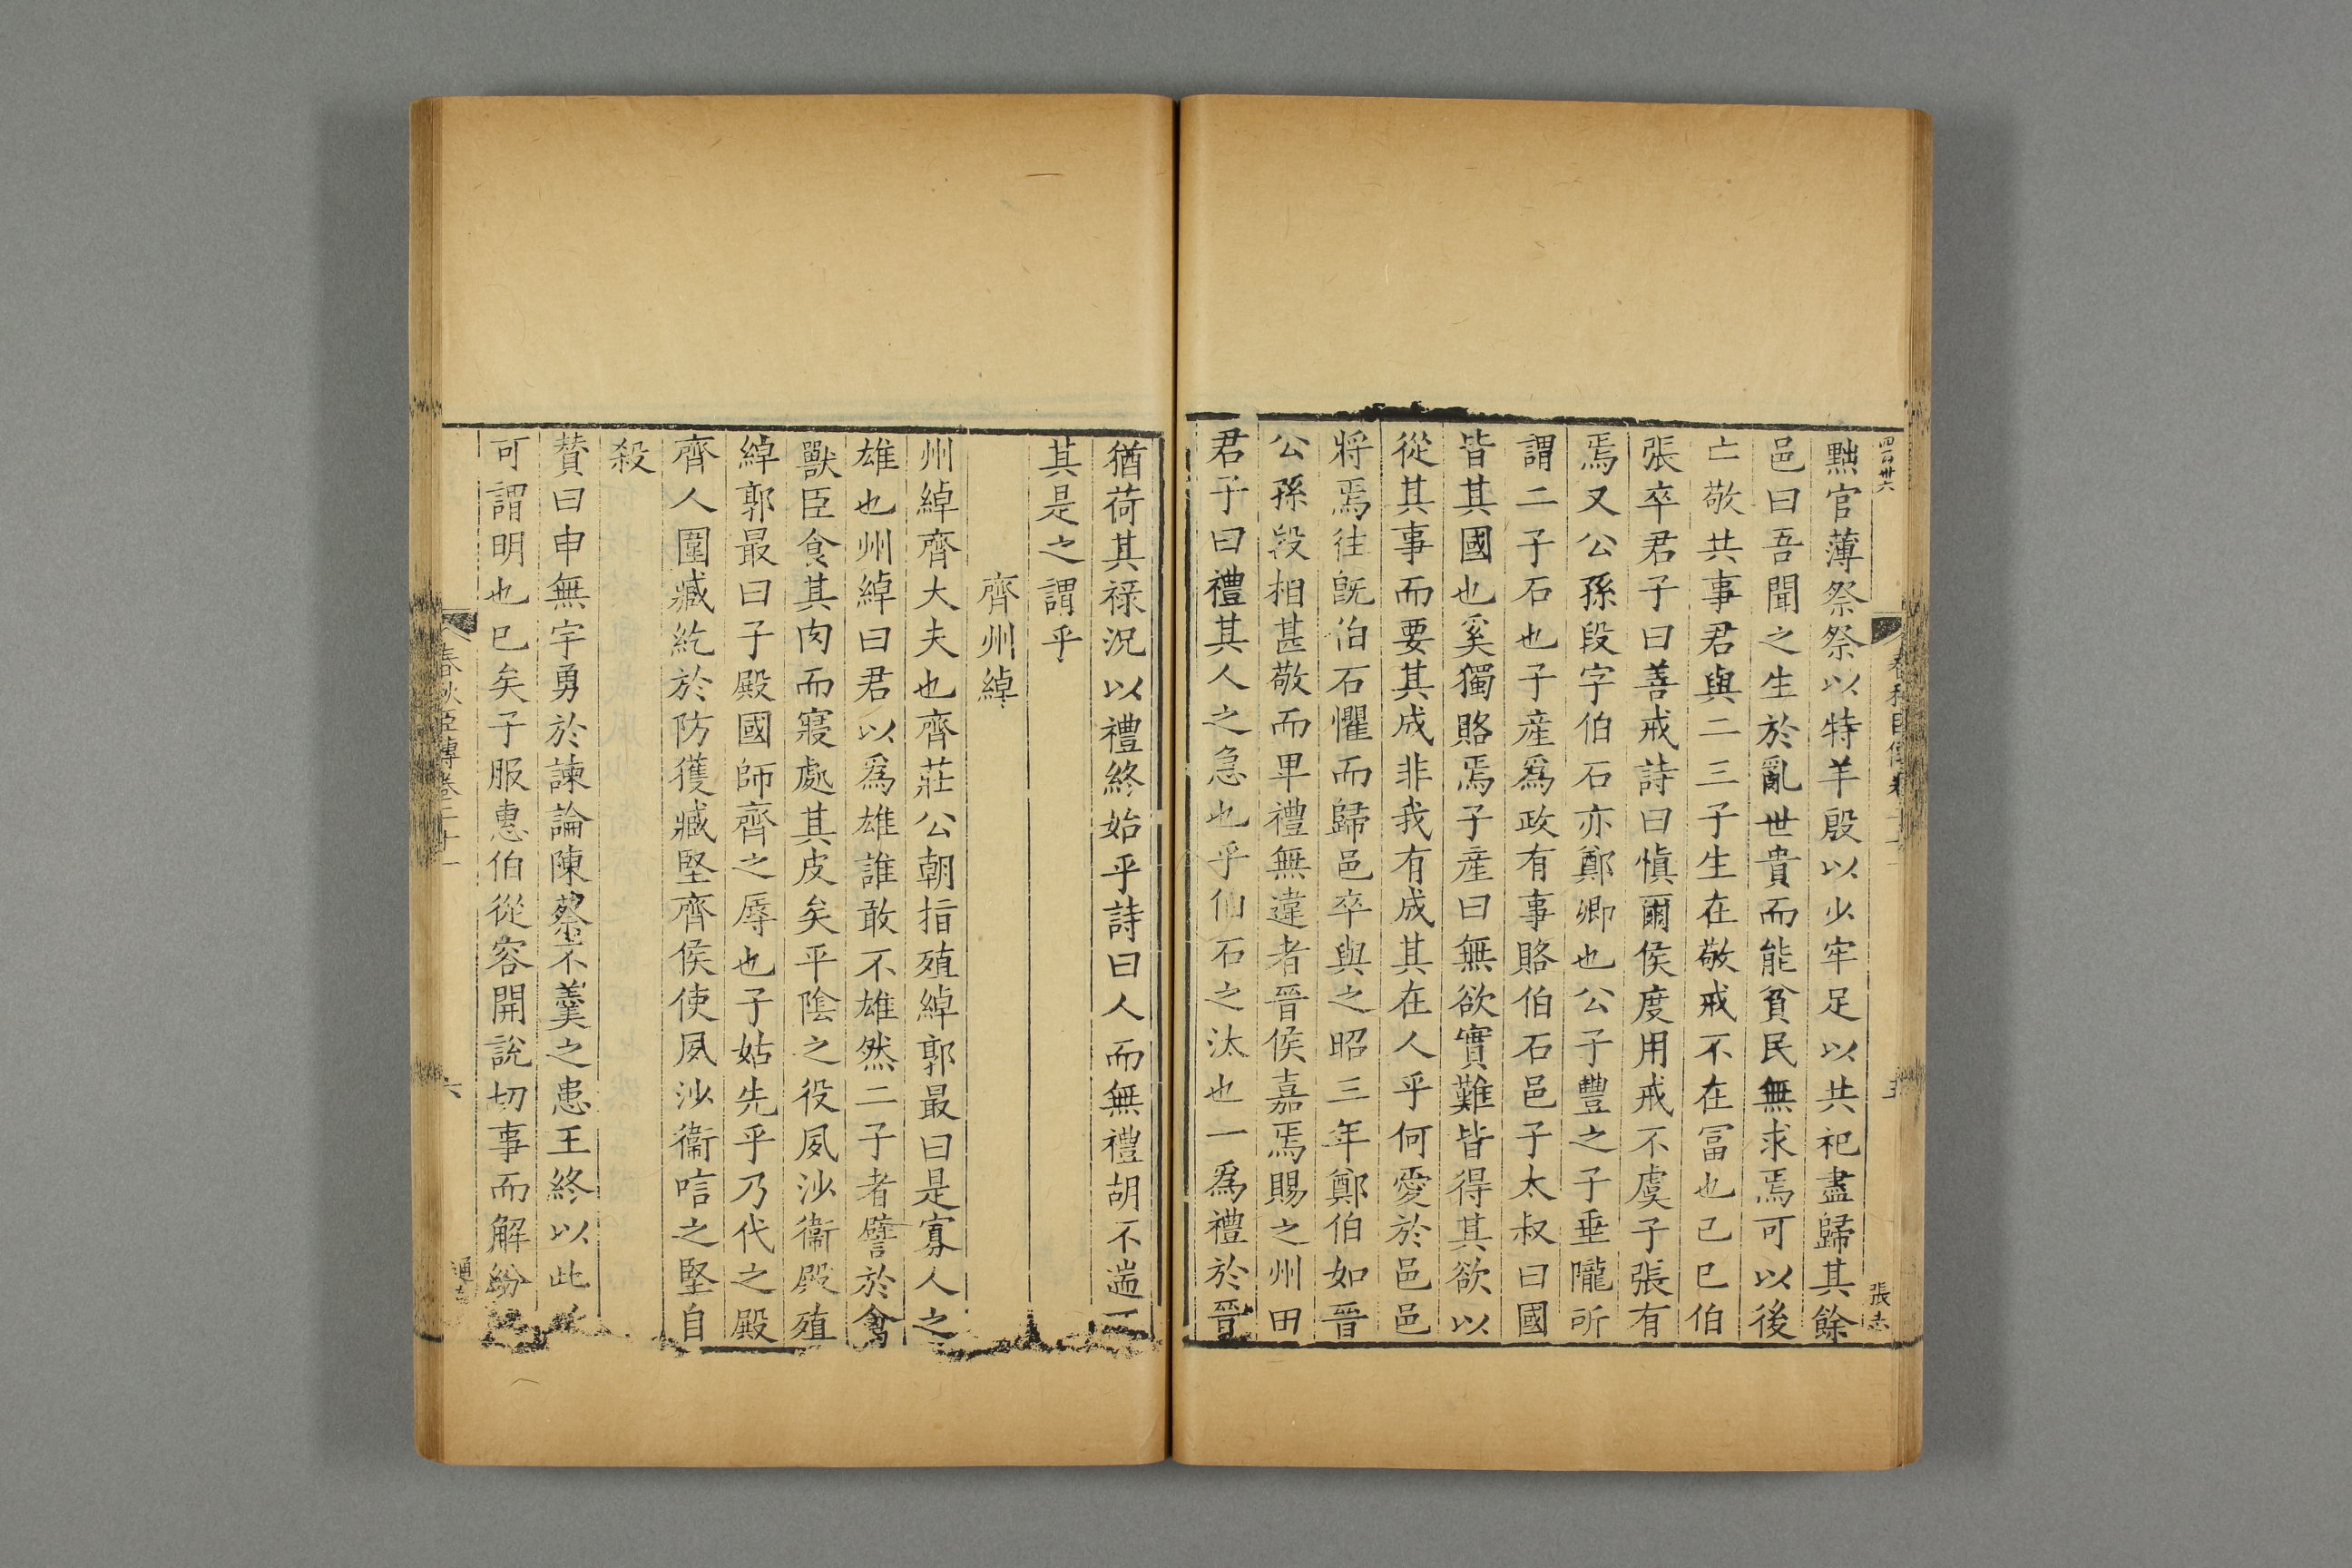 四百卅六
張志
黜官薄祭祭以特羊殷以少牢足以共祀盡歸其餘
邑曰吾聞之生於亂世貴而能貧民無求焉可以後
亡敬共事君與二三子生在敬戒不在冨也己巳伯
張卒君子曰善戒詩曰慎爾侯度用戒不虞子張有
焉又公孫段字伯石亦鄭卿也公子豐之子垂隴所
謂二子石也子產爲政有事賂伯石邑子太叔曰國
皆其國也奚獨賂焉子產曰無欲實難皆得其欲以
從其事而要其成非我有成其在人乎何愛於邑邑
將焉往旣伯石懼而歸邑卒與之昭三年鄭伯如晉
公孫段相甚敬而卑禮無違者晉侯嘉焉賜之州田
君子曰禮其人之急也乎伯石之汰也一爲禮於晉
猶荷其祿況以禮終始乎詩曰人而無禮胡不遄
其是之謂乎
齊州綽
州綽齊大夫也齊莊公朝指殖綽郭最曰是寡人之
雄也州綽曰君以爲雄誰敢不雄然二子者譬於禽
獸臣食其肉而寢處其皮矣平陰之役夙沙衞殿殖
綽郭最曰子殿國師齊之辱也子姑先乎乃代之殿
齊人圍臧紇於防獲臧堅齊侯使夙沙衞唁之堅自
殺
賛曰申無宇勇於諫論陳蔡不羹之患王終以此
可謂明也已矣子服惠伯從容開說切事而解紛
春秋臣傳卷二十一
六